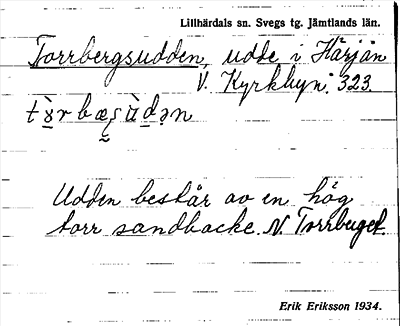 Lillhärdals sn. Svegs tg. Jämtlands län.
Torrbergsudden, udde i Härjån
V. Kyrkbyn. 323.
Udden består av en hög
torr sandbacke. N. Torrberget.
Erik Eriksson 1934.